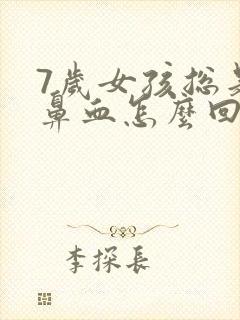 7歲女孩總是
鼻血怎麼回
李探長